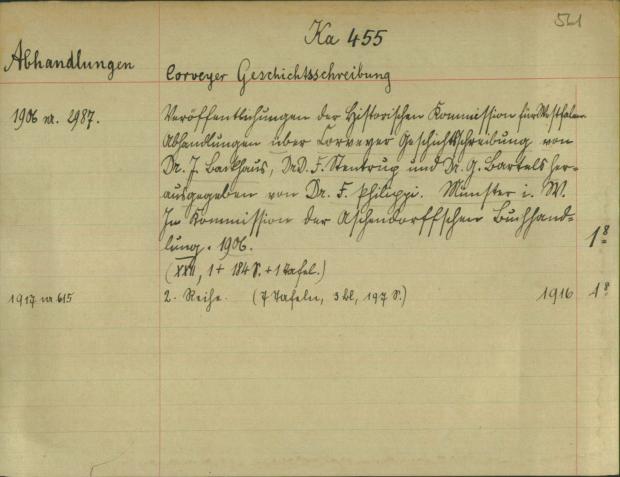 561
Ka 455
Abhandlungen
Corveyer Geschichtsschreibung
1906 nr. 2987.
Veröffentlichungen der Historischen Kommission für Westfalen
Abhandlungen über Corveyer Geschichtsschreibung von
Dr. J. Backhaus, Dr. F. Stentrup und Dr. G. Bartels her-
ausgegeben von Dr. F. Philippi. Münster i. W.
In Kommission der Aschendorffschen Buchhand-
lung. 1906.
1 8°
(XXII, 1 + 184 S. + 1 Tafel.)
1917 nr 615
2. Reihe. (7 Tafeln, 3 Bl, 197 S.) 1916
1 8°